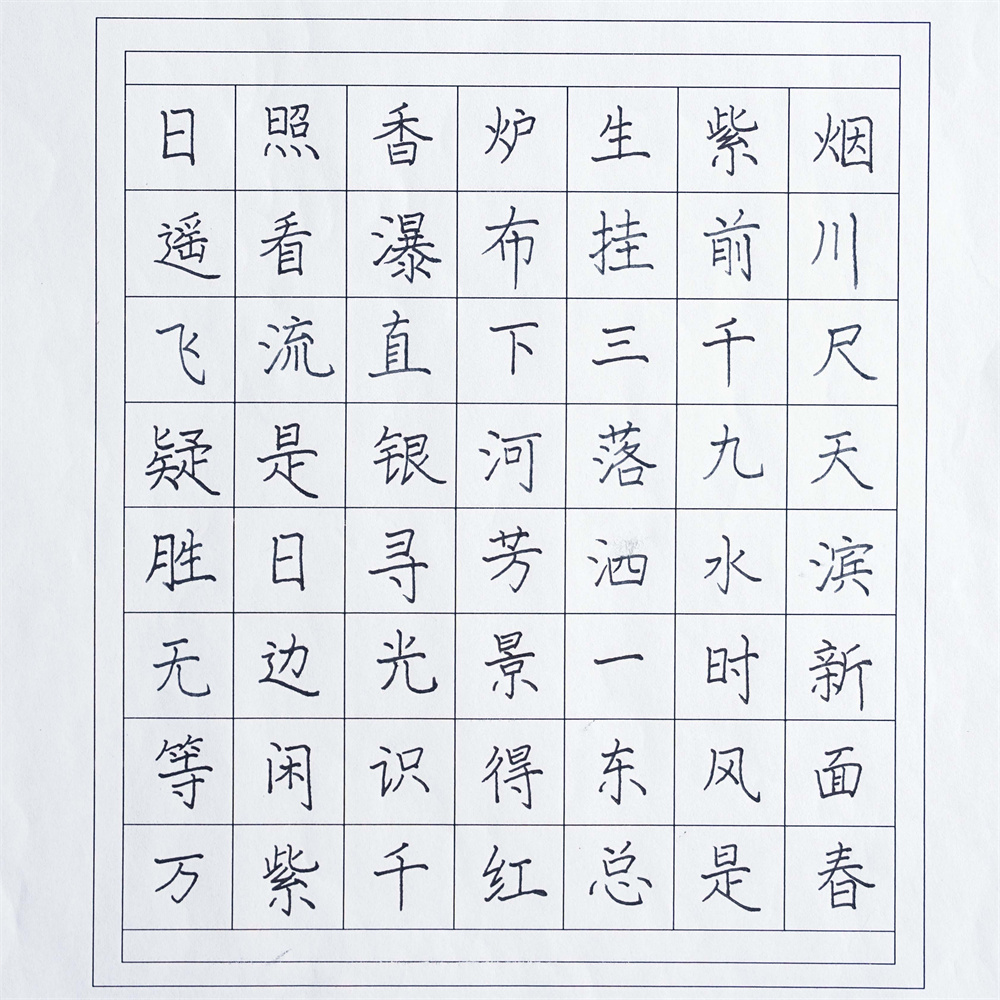 日照香炉生紫烟
遥看瀑布挂前川
飞流直下三千尺
疑是银河落九天
胜日寻芳洒水滨
无边光景一时新
等闲识得东风面
万紫千红总是春